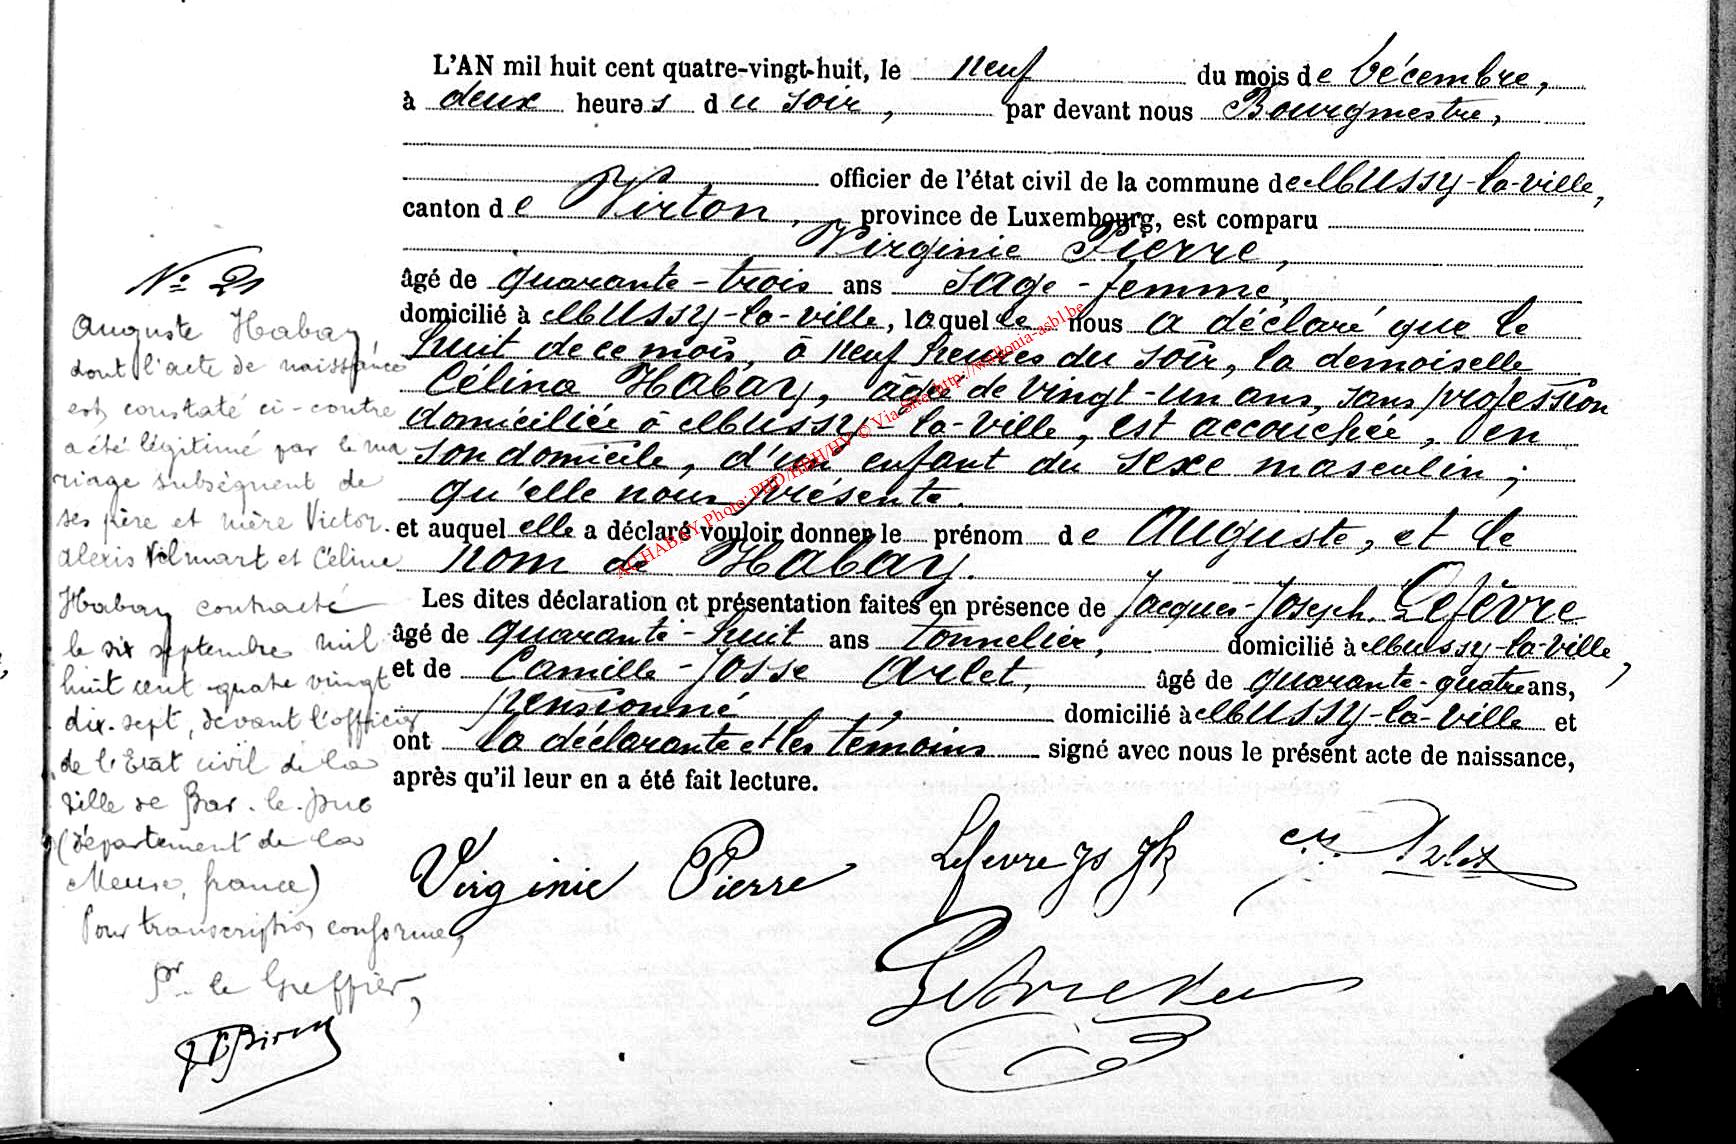 L'AN mil huit cent quatre-vingt-huit, le neuf du mois de Décembre,
à deux heures du soir, par devant nous Bourgmestre,
officier de l'état civil de la commune de Mussy-la-ville,
canton de Virton, province de Luxembourg, est comparu
Virginie Pierre,
âgé de quarante-trois ans sage-femme,
domicilié à Mussy-la-ville, laquelle nous a déclaré que le
huit de ce mois, à neuf heures du soir, la demoiselle
Célina Habay, âgée de vingt-un ans, sans profession
domiciliée à Mussy-la-ville, est accouchée, en
son domicile, d'un enfant du sexe masculin;
qu'elle nous présente.
et auquel elle a déclaré vouloir donner le prénom de Auguste, et le
nom de Habay.
Les dites déclaration et présentation faites en présence de Jacques-Joseph Lefèvre
âgé de quarante-huit ans tonnelier, domicilié à Mussy-la-ville,
et de Camille-Josse Arlet, âgé de quarante-quatre ans,
pensionné, domicilié à Mussy-la-ville et
ont la déclarante et les témoins signé avec nous le présent acte de naissance,
après qu'il leur en a été fait lecture.
Virginie Pierre Lefevre Js Jh Arlet
N° 21
Auguste Habay
dont l'acte de naissance
est constaté ci-contre
a été légitimé par le ma
riage subséquent de
ses père et mère Victor.
Alexis Vilmart et Céline
Habay contracté
le six septembre mil
huit cent quatre vingt
dix-sept, devant l'officier
de l'Etat civil de la
ville de Bar-le-Duc
(département de la
Meuse, france)
Pour transcription conforme,
Pr le Greffier,
AGHABAY Photo: PHD/HBH/HV © Via Site http://wallonia-asbl.be